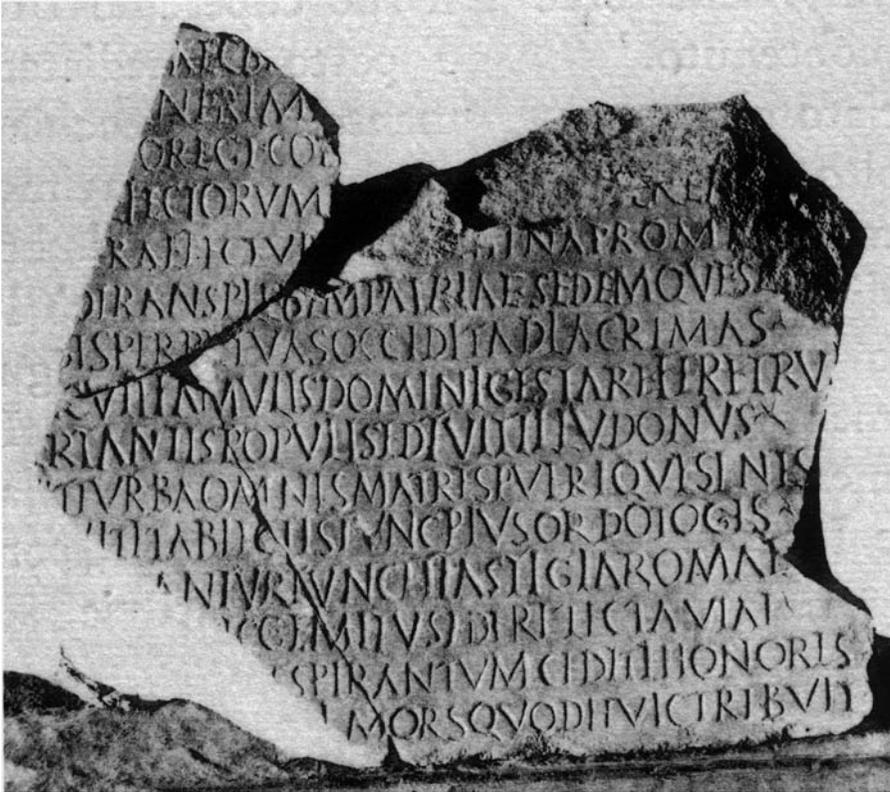 NERIM
OREGI COL
IECTORVM
RAEFECTVR INAPROM
DITRANSPI MPATRIAESEDEMQVES
BISPERPETVASOCCIDITADLACRIMAS
CVITFAMVLISDOMINIGESTAREFERETRV
RTANTISPOPVLISEDFVITILLVDONVS
ITTVRBAOMNISMATRESPVERIQVESENES
VITETABIECTISTVNCPIVSORDOTOGIS
ANTVRTVNCETFASTIGIAROMAE
NCGEMITVSEDERETECTAVIAE
SPIRANTVMCEDITEHONORES
MORSQVODHVICTRIBVIT